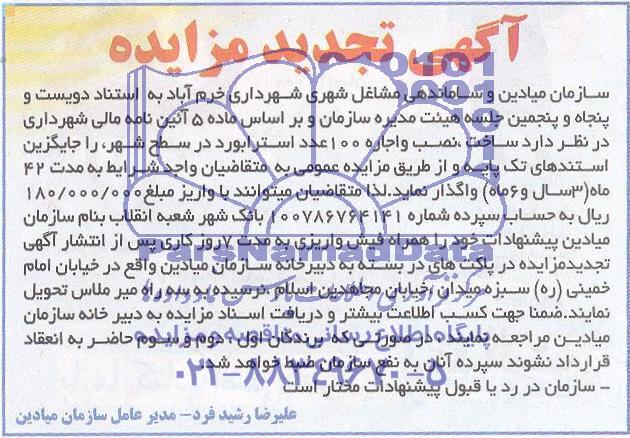 آگهی تجدید مزایده
سازمان میادین و ساماندهی مشاغل شهری شهرداری خرم آباد به استناد دویست و
پنجاه و پنجمین جلسه هیئت مدیره سازمان و بر اساس ماده ۵ آئین نامه مالی شهرداری
در نظر دارد ساخت ،نصب واجاره ۱۰۰عدد استرابورد در سطح شهر، را جایگزین
استندهای تک پایه و از طریق مزایده عمومی به متقاضیان واجد شرایط به مدت ۴۲
ماه(۳سال و۶ماه) واگذار نماید.لذا متقاضیان میتوانند با واریز مبلغ۱۸۰/۰۰۰/۰۰۰
ریال به حساب سپرده شماره ۱۰۰۷۸۶۷۶۴۱۴۱ بانک شهر شعبه انقلاب بنام سازمان
میادین پیشنهادات خود را همراه فیش واریزی به مدت ۷روز کاری پس از انتشار آگهی
تجدیدمزایده در پاکت های در بسته به دبیرخانه سازمان میادین واقع در خیابان امام
خمینی (ره) سبزه میدان ،خیابان مجاهدین اسلام ،نرسیده به سه راه میر ملاس تحویل
نمایند.ضمنا جهت کسب اطلاعت بیشتر و دریافت اسناد مزایده به دبیر خانه سازمان
میادین مراجعه نمایند ، در صورتی که برندگان اول ، دوم و سوم حاضر به انعقاد
قرارداد نشوند سپرده آنان به نفع سازمان ضبط خواهد شد.
- سازمان در رد یا قبول پیشنهادات مختار است
علیرضا رشید فرد- مدیر عامل سازمان میادین
ParsNamadData
پایگاه اطلاع رسانی مناقصه و مزایده
۰۲۱-۸۸۳۴۹۶۷۰-۵